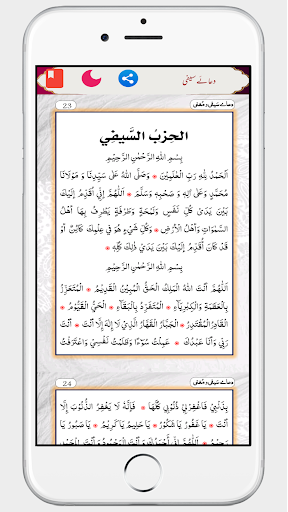 دعائے سیفی
23
دعاے سیفی و مغنی
الحِزبُ السَّيفِي
بِسْمِ اللهِ الرَّحْمٰنِ الرَّحِيْمِ
اَلْحَمْدُ لِلّٰهِ رَبِّ الْعٰلَمِيْنَ ٭ وَصَلَّى اللهُ عَلٰى سَيِّدِنَا وَ مَوْلَانَا
مُحَمَّدٍ وَعَلٰى اٰلِهٖ وَ صَحْبِهٖ وَسَلَّمَ ٭ اَللّٰهُمَّ إِنِّي أُقَدِّمُ إِلَيْكَ
بَيْنَ يَدَيْ كُلِّ نَفَسٍ وَّلَمْحَةٍ وَّطَرْفَةٍ يَطْرِفُ بِهَا أَهْلُ
السَّمٰوَاتِ وَأَهْلُ الْأَرْضِ ٭ وَكُلِّ شَيْءٍ هُوَ فِي عِلْمِكَ كَائِنٌ أَوْ
قَدْ كَانَ أُقَدِّمُ إِلَيْكَ بَيْنَ يَدَيْ ذٰلِكَ كُلِّهٖ ٭
بِسْمِ اللهِ الرَّحْمٰنِ الرَّحِيْمِ
اَللّٰهُمَّ أَنْتَ اللهُ الْمَلِكُ الْحَقُّ الْمُبِيْنُ الْقَدِيْمُ ٭ الْمُتَعَزِّزُ
بِالْعَظَمَةِ وَالْكِبْرِيَآءِ ٭ الْمُتَفَرِّدُ بِالْبَقَآءِ ٭ الْحَيُّ الْقَيُّوْمُ ٭
الْقَادِرُ الْمُقْتَدِرُ ٭ الْجَبَّارُ الْقَهَّارُ الَّذِيْ لَا إِلٰهَ إِلَّا أَنْتَ ٭ أَنْتَ
رَبِّيْ وَأَنَا عَبْدُكَ ٭ عَمِلْتُ سُوْءًا وَظَلَمْتُ نَفْسِيْ وَاعْتَرَفْتُ
24
دعاے سیفی و مغنی
بِذَنْبِيْ فَاغْفِرْلِيْ ذُنُوْبِيْ كُلَّهَا ٭ فَإِنَّهٗ لَا يَغْفِرُ الذُّنُوْبَ إِلَّا
أَنْتَ ٭ يَا غَفُوْرُ يَا شَكُوْرُ ٭ يَا حَلِيْمُ يَا كَرِيْمُ ٭ يَا صَبُوْرُ يَا